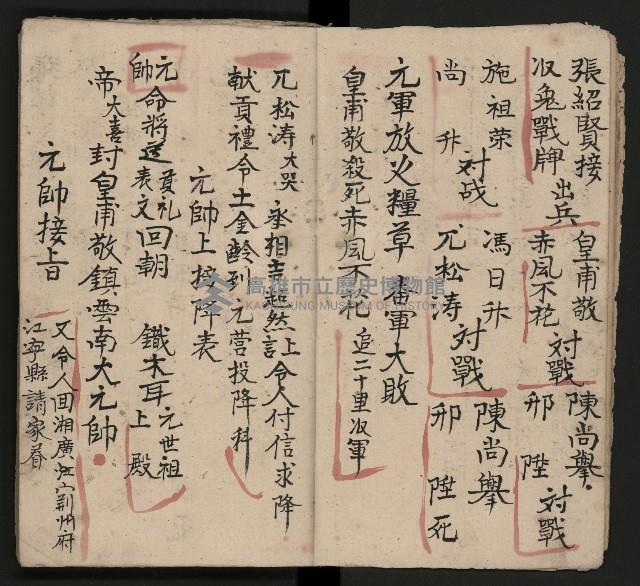 張紹賢接
收兔戰牌 出兵 皇甫敬
赤凨不花 对戰 陳尚舉
邢 陞 对戰
施祖荣
尚 升 对战 馮日升
兀松涛 对戰 陳尚舉
邢 陞 死
元軍放火糧草 番軍大敗
皇甫敬殺死赤凨不花 追二十里收軍
兀松涛大哭 丞相 超然言上令人付信求降
献貢禮令土金 到元营投降科
元帥上接降表
元帥命將送貢礼表文回朝 鐡木耳元世祖上殿
帝大喜封皇甫敬鎮雲南大元帥
元帥接旨 又令人回湘廣 荆州府
江寧縣請家眷
高雄市立歷史博物館
KAOHSIUNG MUSEUM OF HISTORY